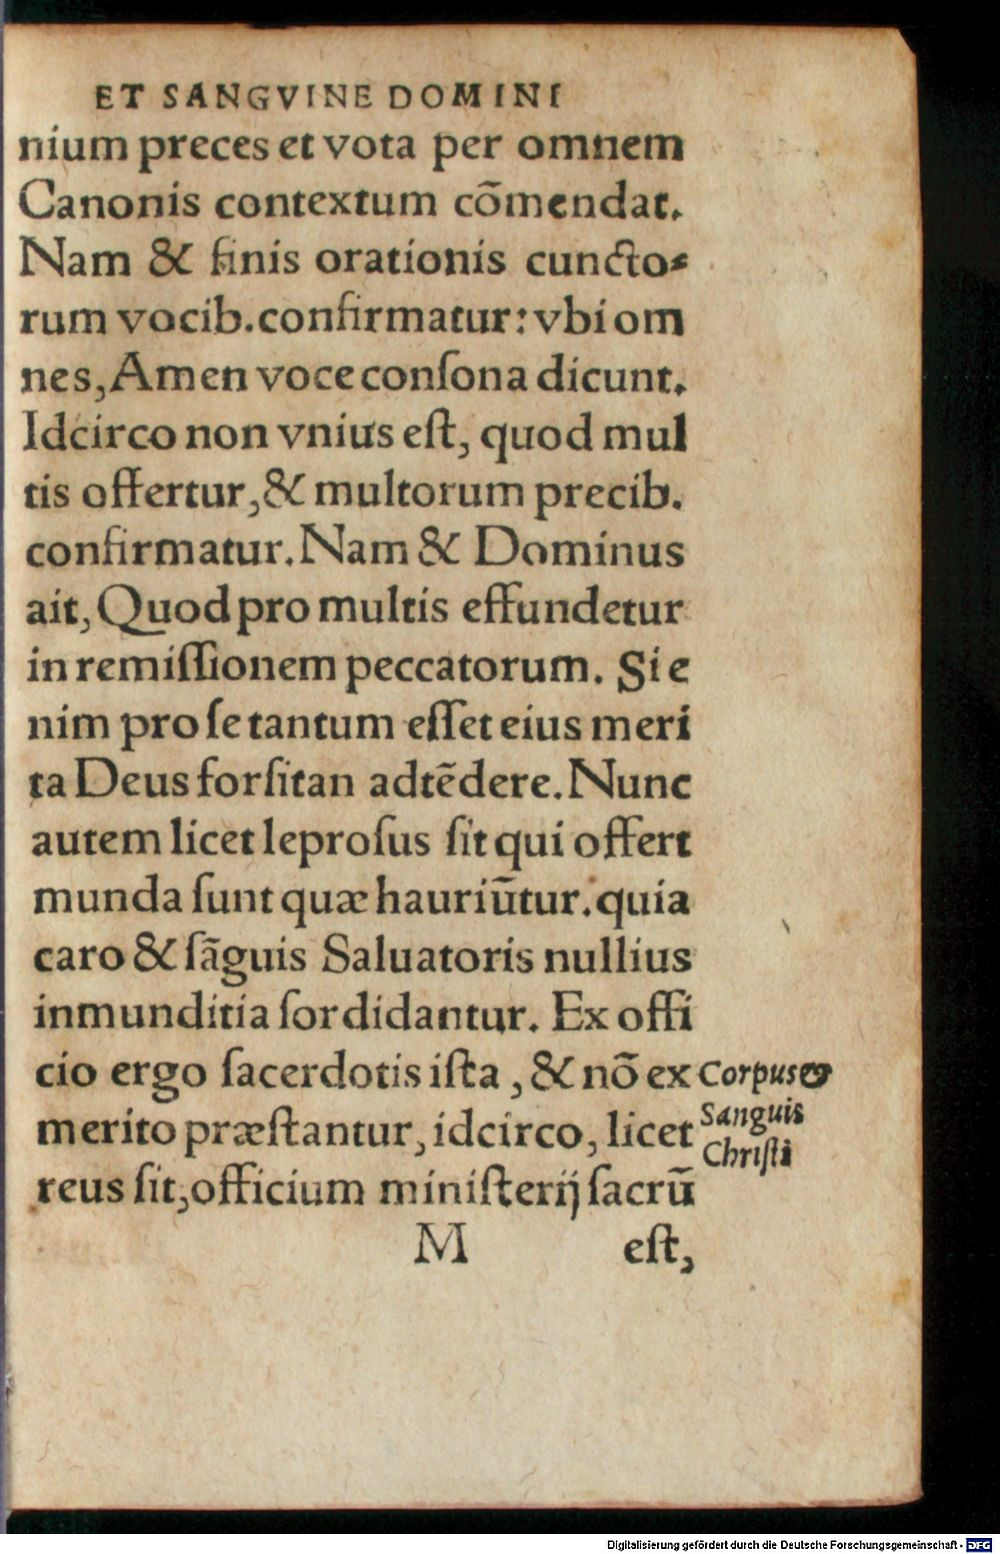 ET SANGVINE DOMINI
nium preces et vota per omnem
Canonis contextum cōmendat.
Nam & finis orationis cuncto-
rum vocib. confirmatur: vbi om
nes, Amen voce conſona dicunt.
Idcirco non vnius eſt, quod mul
tis offertur, & multorum precib.
confirmatur. Nam & Dominus
ait, Quod pro multis effundetur
in remiſſionem peccatorum. Si e
nim pro ſe tantum eſſet eius meri
ta Deus forſitan adtēdere. Nunc
autem licet leproſus ſit qui offert
munda ſunt quæ hauriūtur. quia
caro & ſāguis Saluatoris nullius
inmunditia ſordidantur. Ex offi
cio ergo ſacerdotis iſta, & nō ex
merito præſtantur, idcirco, licet
reus ſit, officium miniſterij ſacrū
Corpus &
Sanguis
Chriſti
M eſt,
Digitalisierung gefördert durch die Deutsche Forschungsgemeinschaft - DFG